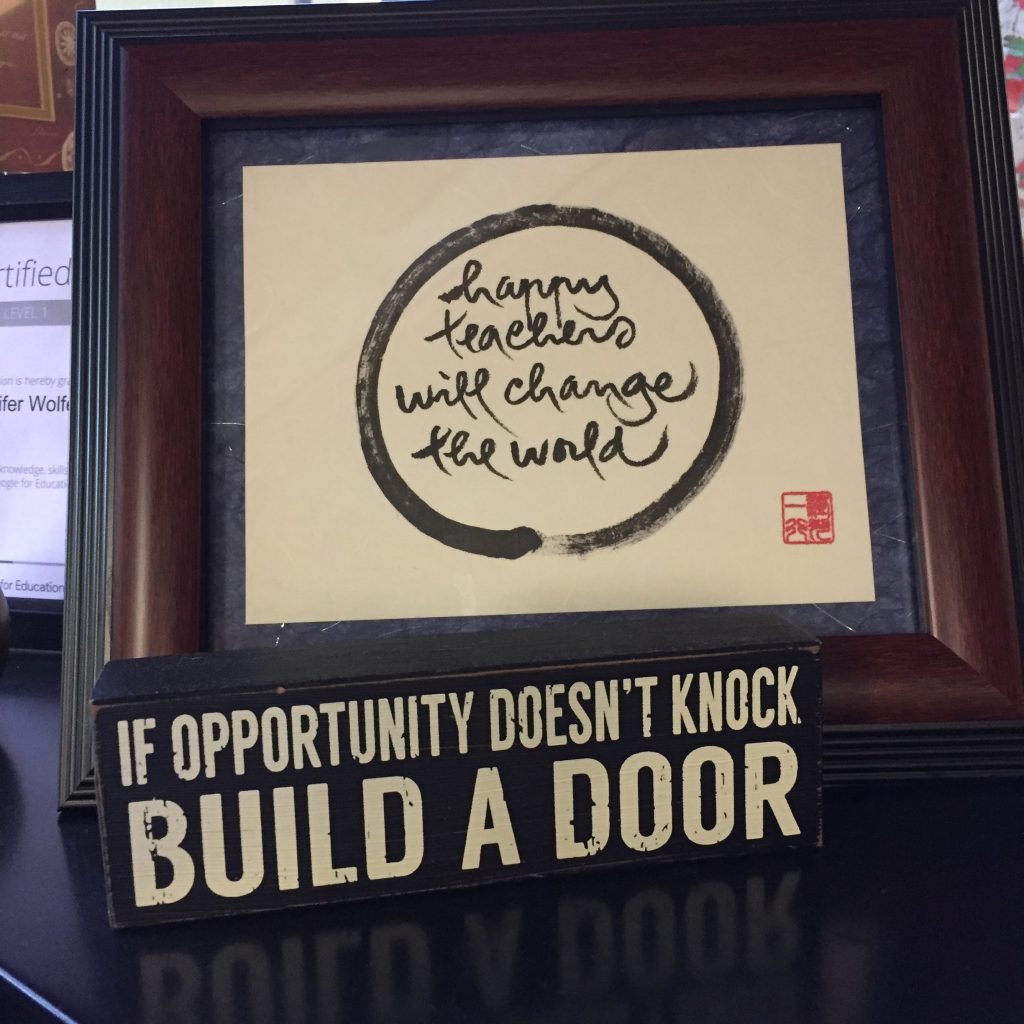 happy
teachers
will change
the world
IF OPPORTUNITY DOESN'T KNOCK
BUILD A DOOR
rtified
LEVEL 1
ion is hereby gra
ifer Wolfe
knowledge, skills
oogle for Educati
for Education